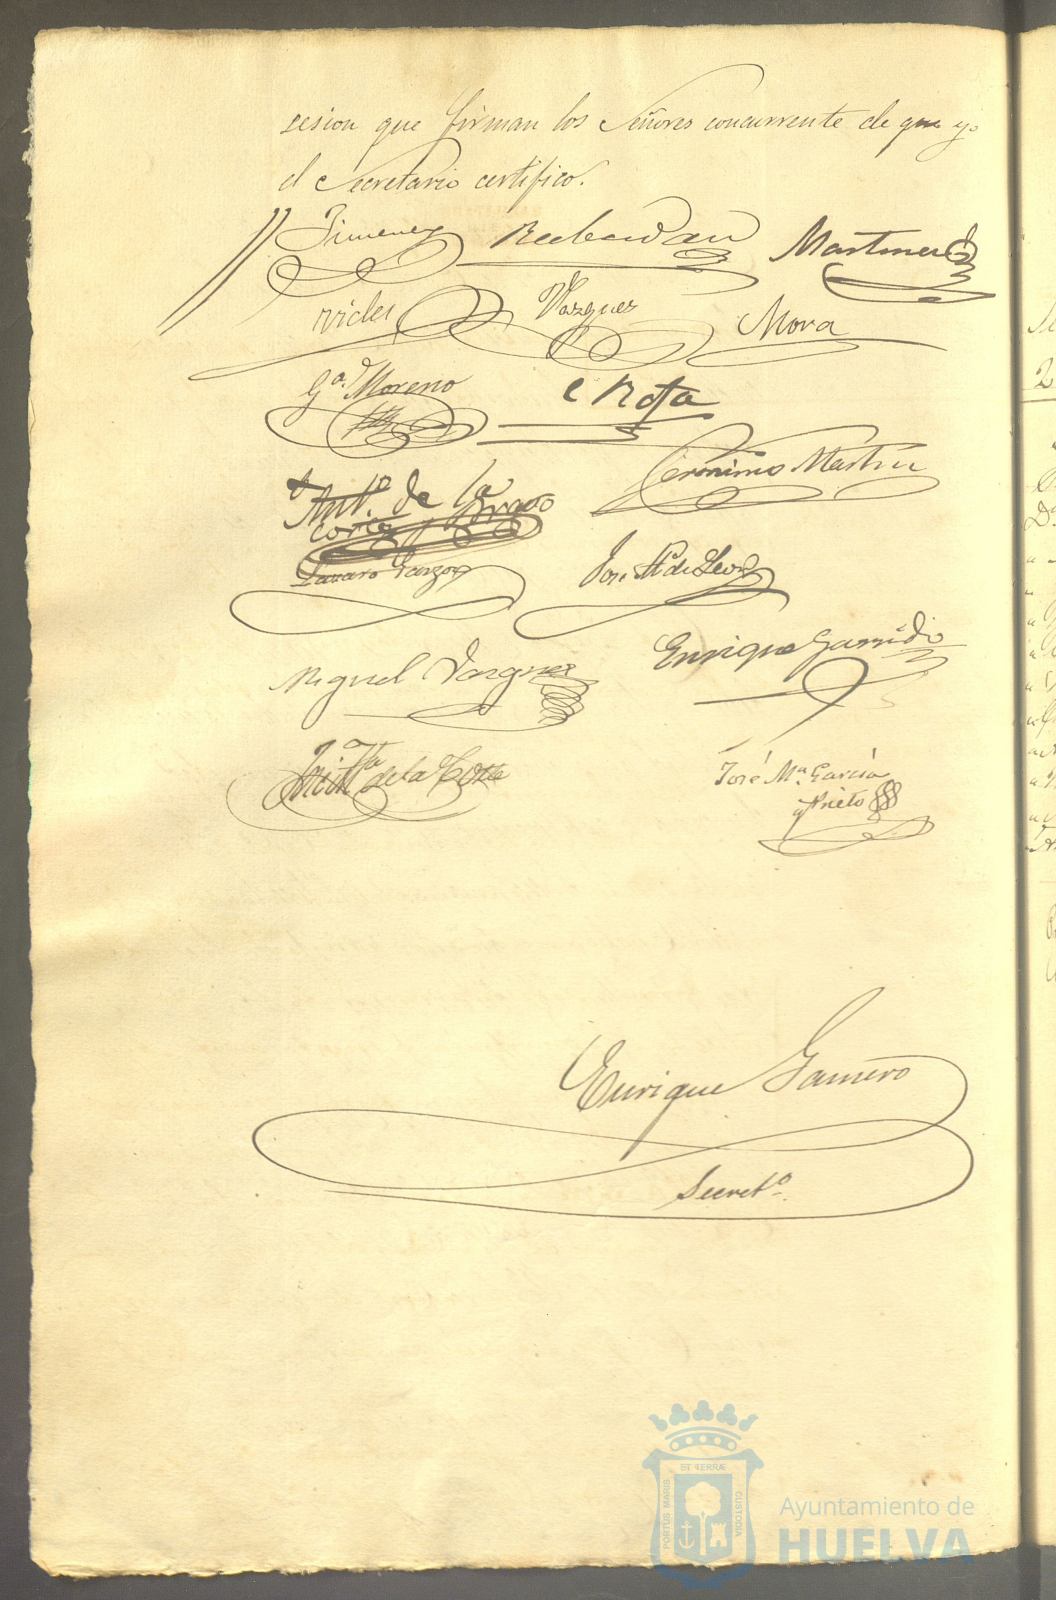 sesion que firman los Señores concurrente de que yo
el Secretario certifico.
Jimenez
Martinez
Vazquez
Mora
Gª. Moreno
C Rofa
Jeronimo Martin
Antº. de la
Corte y Bravo
Lazaro Garzon
José Mª. de Leon
Enrique Garrido
Miguel Vazquez
de la Corte
José Mª. Garcia
y Prieto
Enrique Gamero
Secretº.
ET TERRÆ
PORTUS MARIS
CUSTODIA
Ayuntamiento de
HUELVA